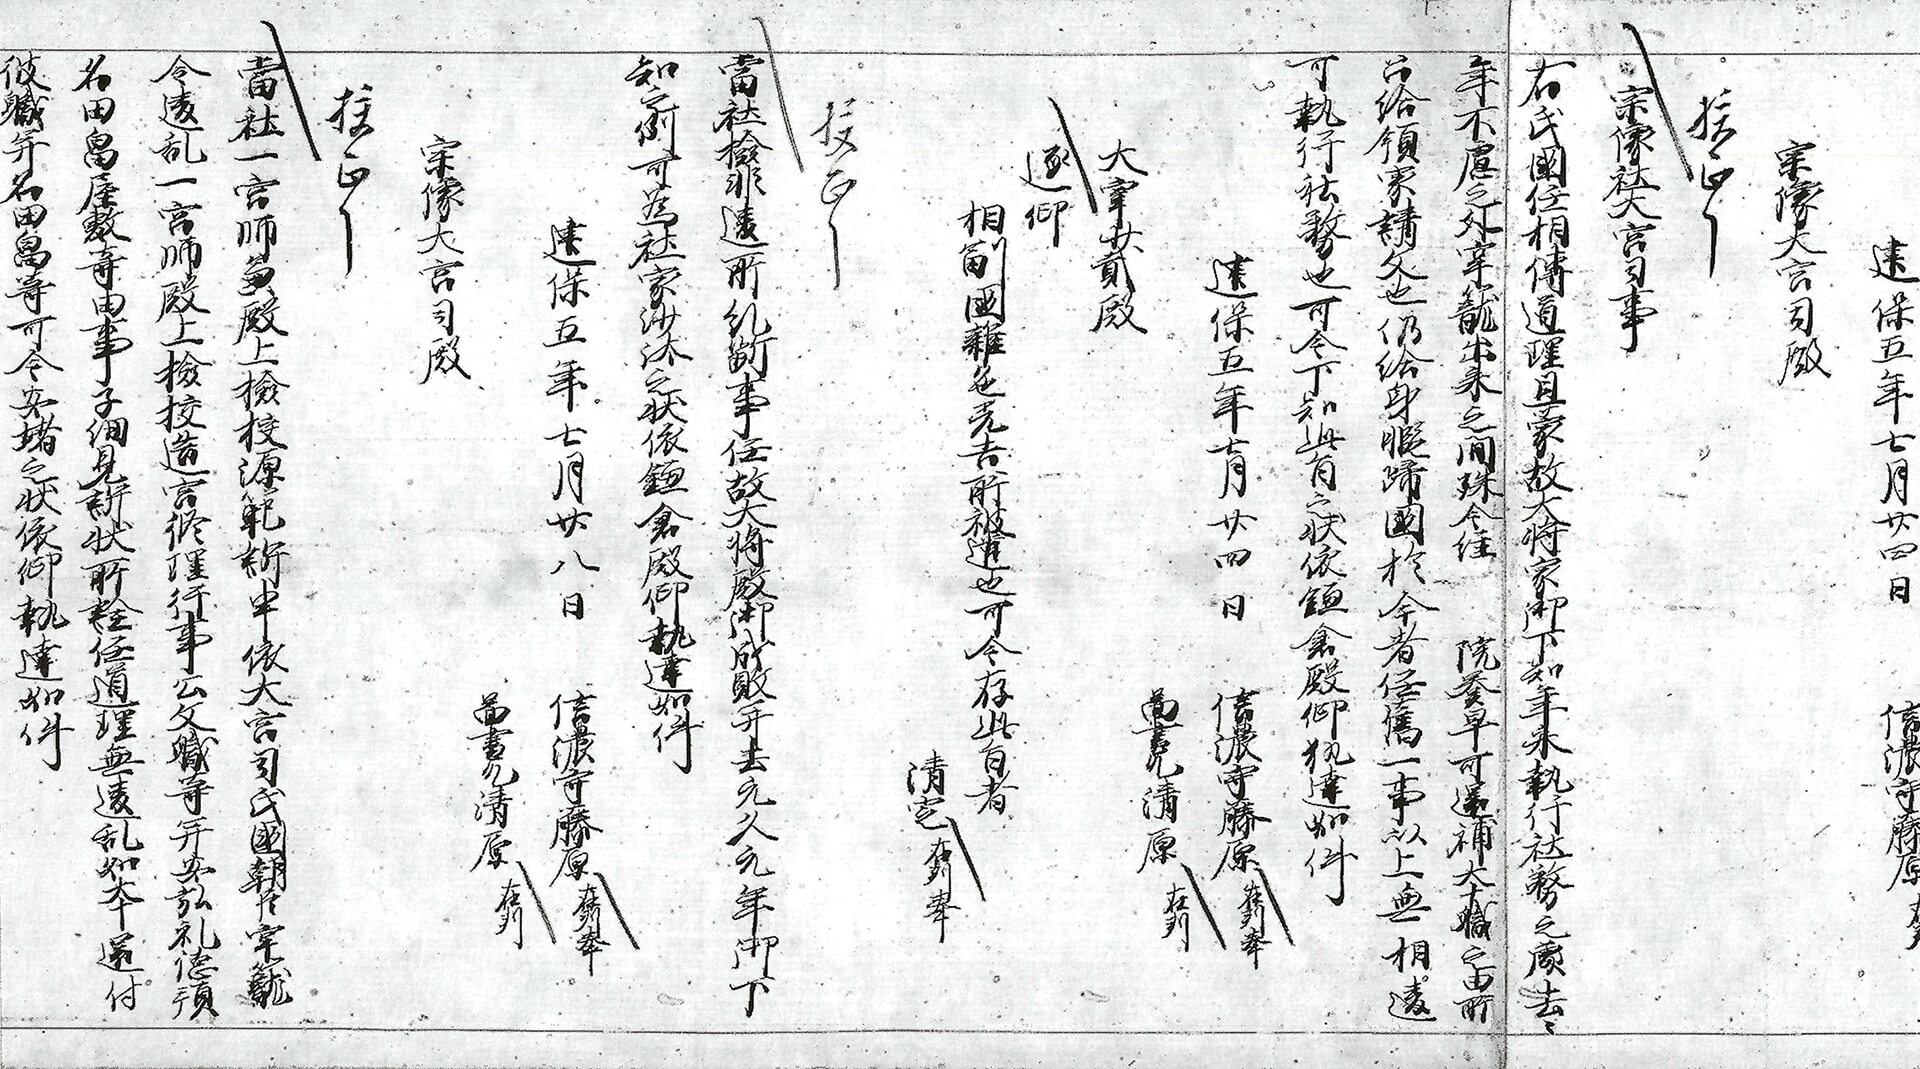 建保五年七月廿四日
信濃守藤原在判
宗像大宮司殿
宗像社大宮司事
右氏國任相傳道理且蒙故大将家御下知年来執行社務之處去々
年不慮之外牢籠出来之間殊令経　院奏早可還補大宮職之由所
召給領家請文也仍給身暇歸國於今者任舊一事以上無相違
可執行社務也可令下知此旨之状依鎌倉殿仰執達如件
建保五年七月廿四日
信濃守藤原在判奉
圖書允清原在判
大宰少貳殿
逐仰
相副國雜色光吉所被遣也可令存此旨者
清定在判奉
當社檢非違所糺断事任故大将殿御成敗并去元久元年御下
知之例可為社家沙汰之状依鎌倉殿仰執達如件
建保五年七月廿八日
信濃守藤原在判奉
圖書允清原在判
宗像大宮司殿
當社一宮師兼殿上檢校源範訴申依大宮司氏國朝臣牢籠
令違乱一宮師殿上檢校造宮修理行事公文職等并安弘礼徳預
名田畠屋敷等由事子細見訴状所詮任道理無違乱如本還付
彼職并名田畠等可令安堵之状依仰執達如件